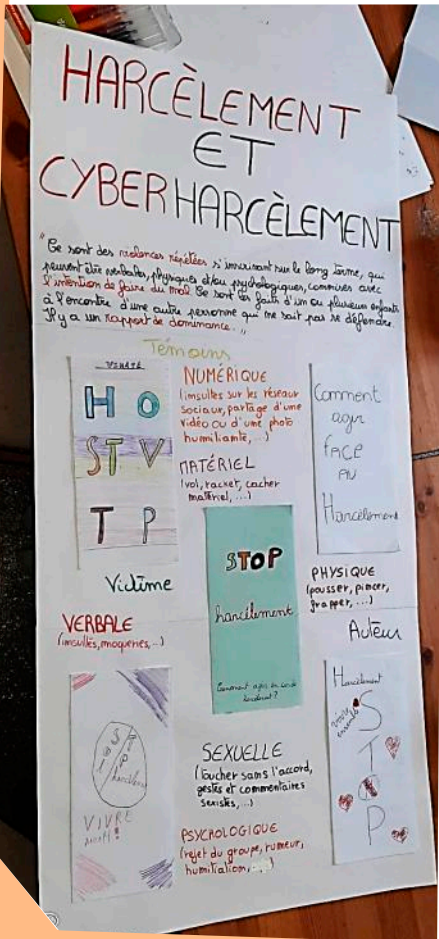 HARCÈLEMENT
ET
CYBERHARCÈLEMENT
"Ce sont des violences répétées s'inscrivant sur le long terme, qui
peuvent être verbales, physiques et/ou psychologiques, commises avec
l'intention de faire du mal. Ce sont les faits d'un ou plusieurs enfants
à l'encontre d'une autre personne qui ne sait pas se défendre.
Il y a un rapport de dominance."
Témoins
HO
STV
TP
NUMÉRIQUE
(insultes sur les réseaux
sociaux, partage d'une
vidéo ou d'une photo
humiliante, ...)
MATÉRIEL
(vol, racket, cacher
matériel, ...)
Comment
agir
face
au
Harcèlement
Victime
STOP
harcèlement
Comment agir
PHYSIQUE
(pousser, pincer,
frapper, ...)
Auteur
VERBALE
(insultes, moqueries, ...)
VIVRE
SEXUELLE
(toucher sans l'accord,
gestes et commentaires
sexistes, ...)
PSYCHOLOGIQUE
(rejet du groupe, rumeur,
humiliation, ...)
Harcèlement
vivre
ensemble
STOP